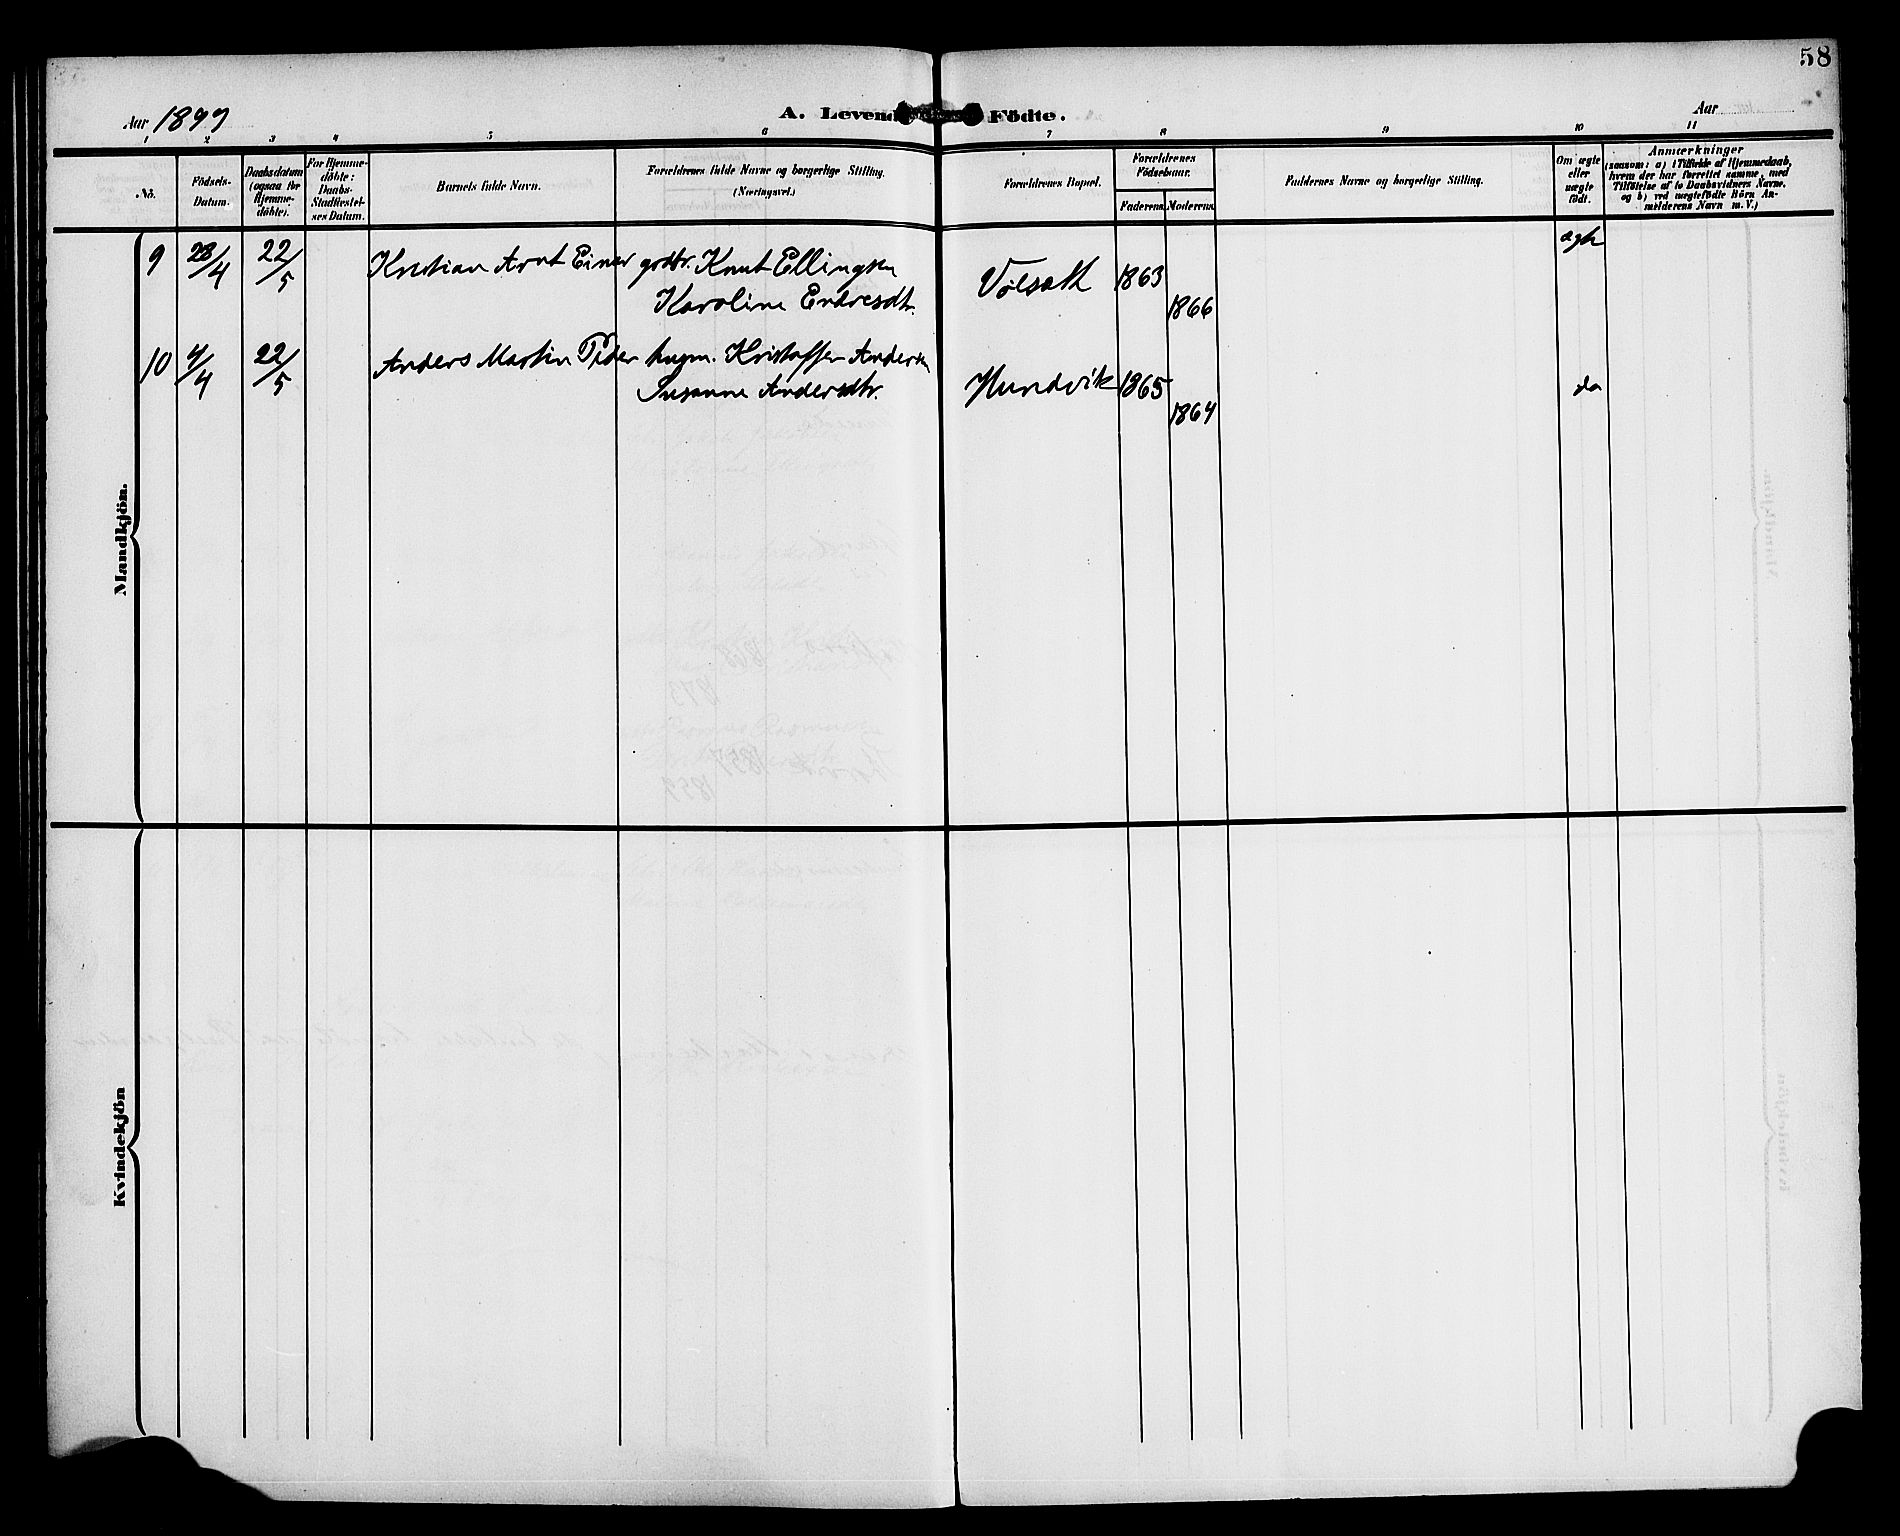 58
Aar 1897
A. Levende Födte.
Aar
1 2 3 4 5 6 7 8 9 10 11
No.
Födsels-Datum.
Daabsdatum (ogsaa for Hjemme-döbte).
For Hjemme-döbte: Daabs-Stadfæstel-ses Datum.
Barnets fulde Navn.
Forældrenes fulde Navne og borgerlige Stilling.
(Næringsvei.)
Forældrenes Bopæl.
Forældrenes Födselsaar.
Faderens. Moderens.
Faddernes Navne og borgerlige Stilling.
Om ægte eller uægte födt.
Anmærkninger
(saasom: a) i Tilfælde af Hjemmedaab,
hvem der har forrettet samme, med
Tilföielse af to Daabsvidners Navne,
og b) ved uægtefödte Börn An-
melderens Navn m. V.)
Mandkjön.
9 28/4 22/5 Kristian Arnt Einar grdbr. Knut Ellingsen Vølsæth 1863 ægte
Karoline Endresdtr. 1866
10 4/4 22/5 Anders Martin Peder husm. Kristoffer Andersen
Susanne Andersdtr. Hundvik 1865 do
1864
Kvindekjön